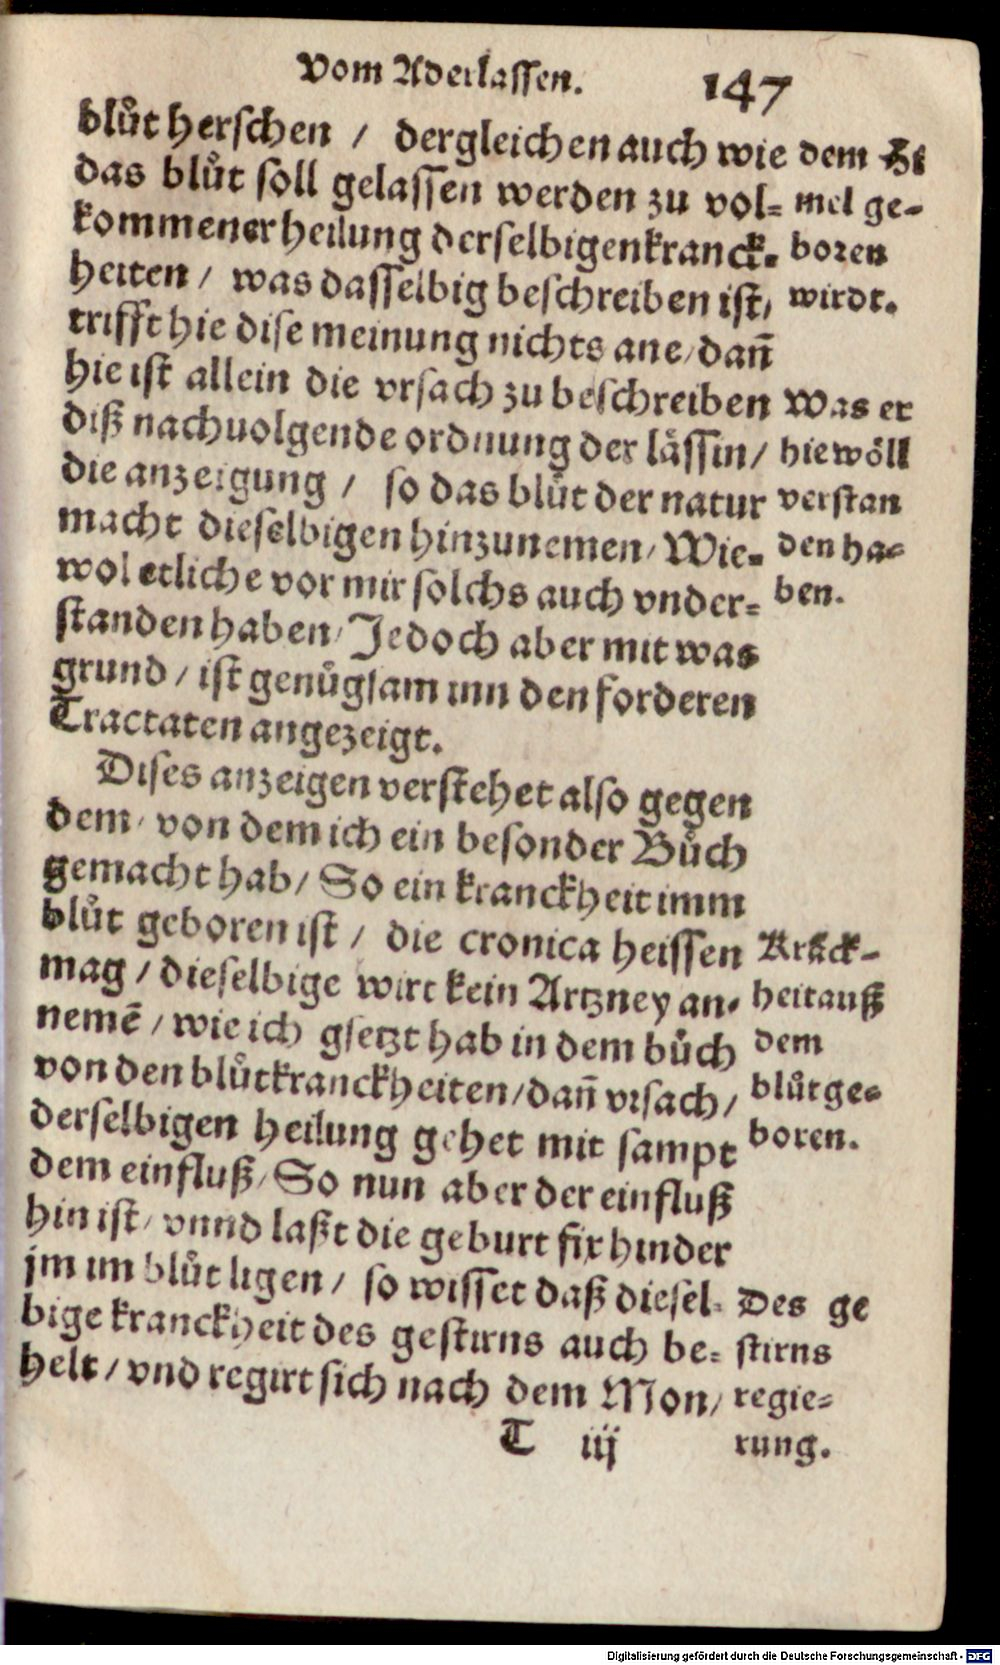 Vom Aderlassen. 147
blůt herschen / dergleichen auch wie
das blůt soll gelassen werden zu vol=
kommener heilung derselbigen kranck=
heiten / was dasselbig beschreiben ist,
trifft hie dise meinung nichts ane, dañ
hie ist allein die vrsach zu beschreiben
diß nachuolgende ordnung der lässin /
die anzeigung / so das blůt der natur
macht dieselbigen hinzunemen, Wie=
wol etliche vor mir solchs auch vnder=
standen haben, Jedoch aber mit was
grund / ist genůgsam inn den forderen
Tractaten angezeigt.
Dises anzeigen verstehet also gegen
dem, von dem ich ein besonder Bůch
gemacht hab / So ein kranckheit imm
blůt geboren ist / die cronica heissen
mag / dieselbige wirt kein Artzney an=
nemē / wie ich gsetzt hab in dem bůch
von den blůtkranckheiten / dañ vrsach /
derselbigen heilung gehet mit sampt
dem einfluß, So nun aber der einfluß
hin ist, vnnd laßt die geburt fix hinder
jm im blůt ligen / so wisset daß diesel=
bige kranckheit des gestirns auch be=
helt / vnd regirt sich nach dem Mon,
T iij
dem Hi
mel ge=
boren
wirdt.
Was er
hie wöll
verstan
den ha=
ben.
Krāck=
heit auß
dem
blůt ge=
boren.
Des ge
stirns
regie=
rung.
Digitalisierung gefördert durch die Deutsche Forschungsgemeinschaft - DFG